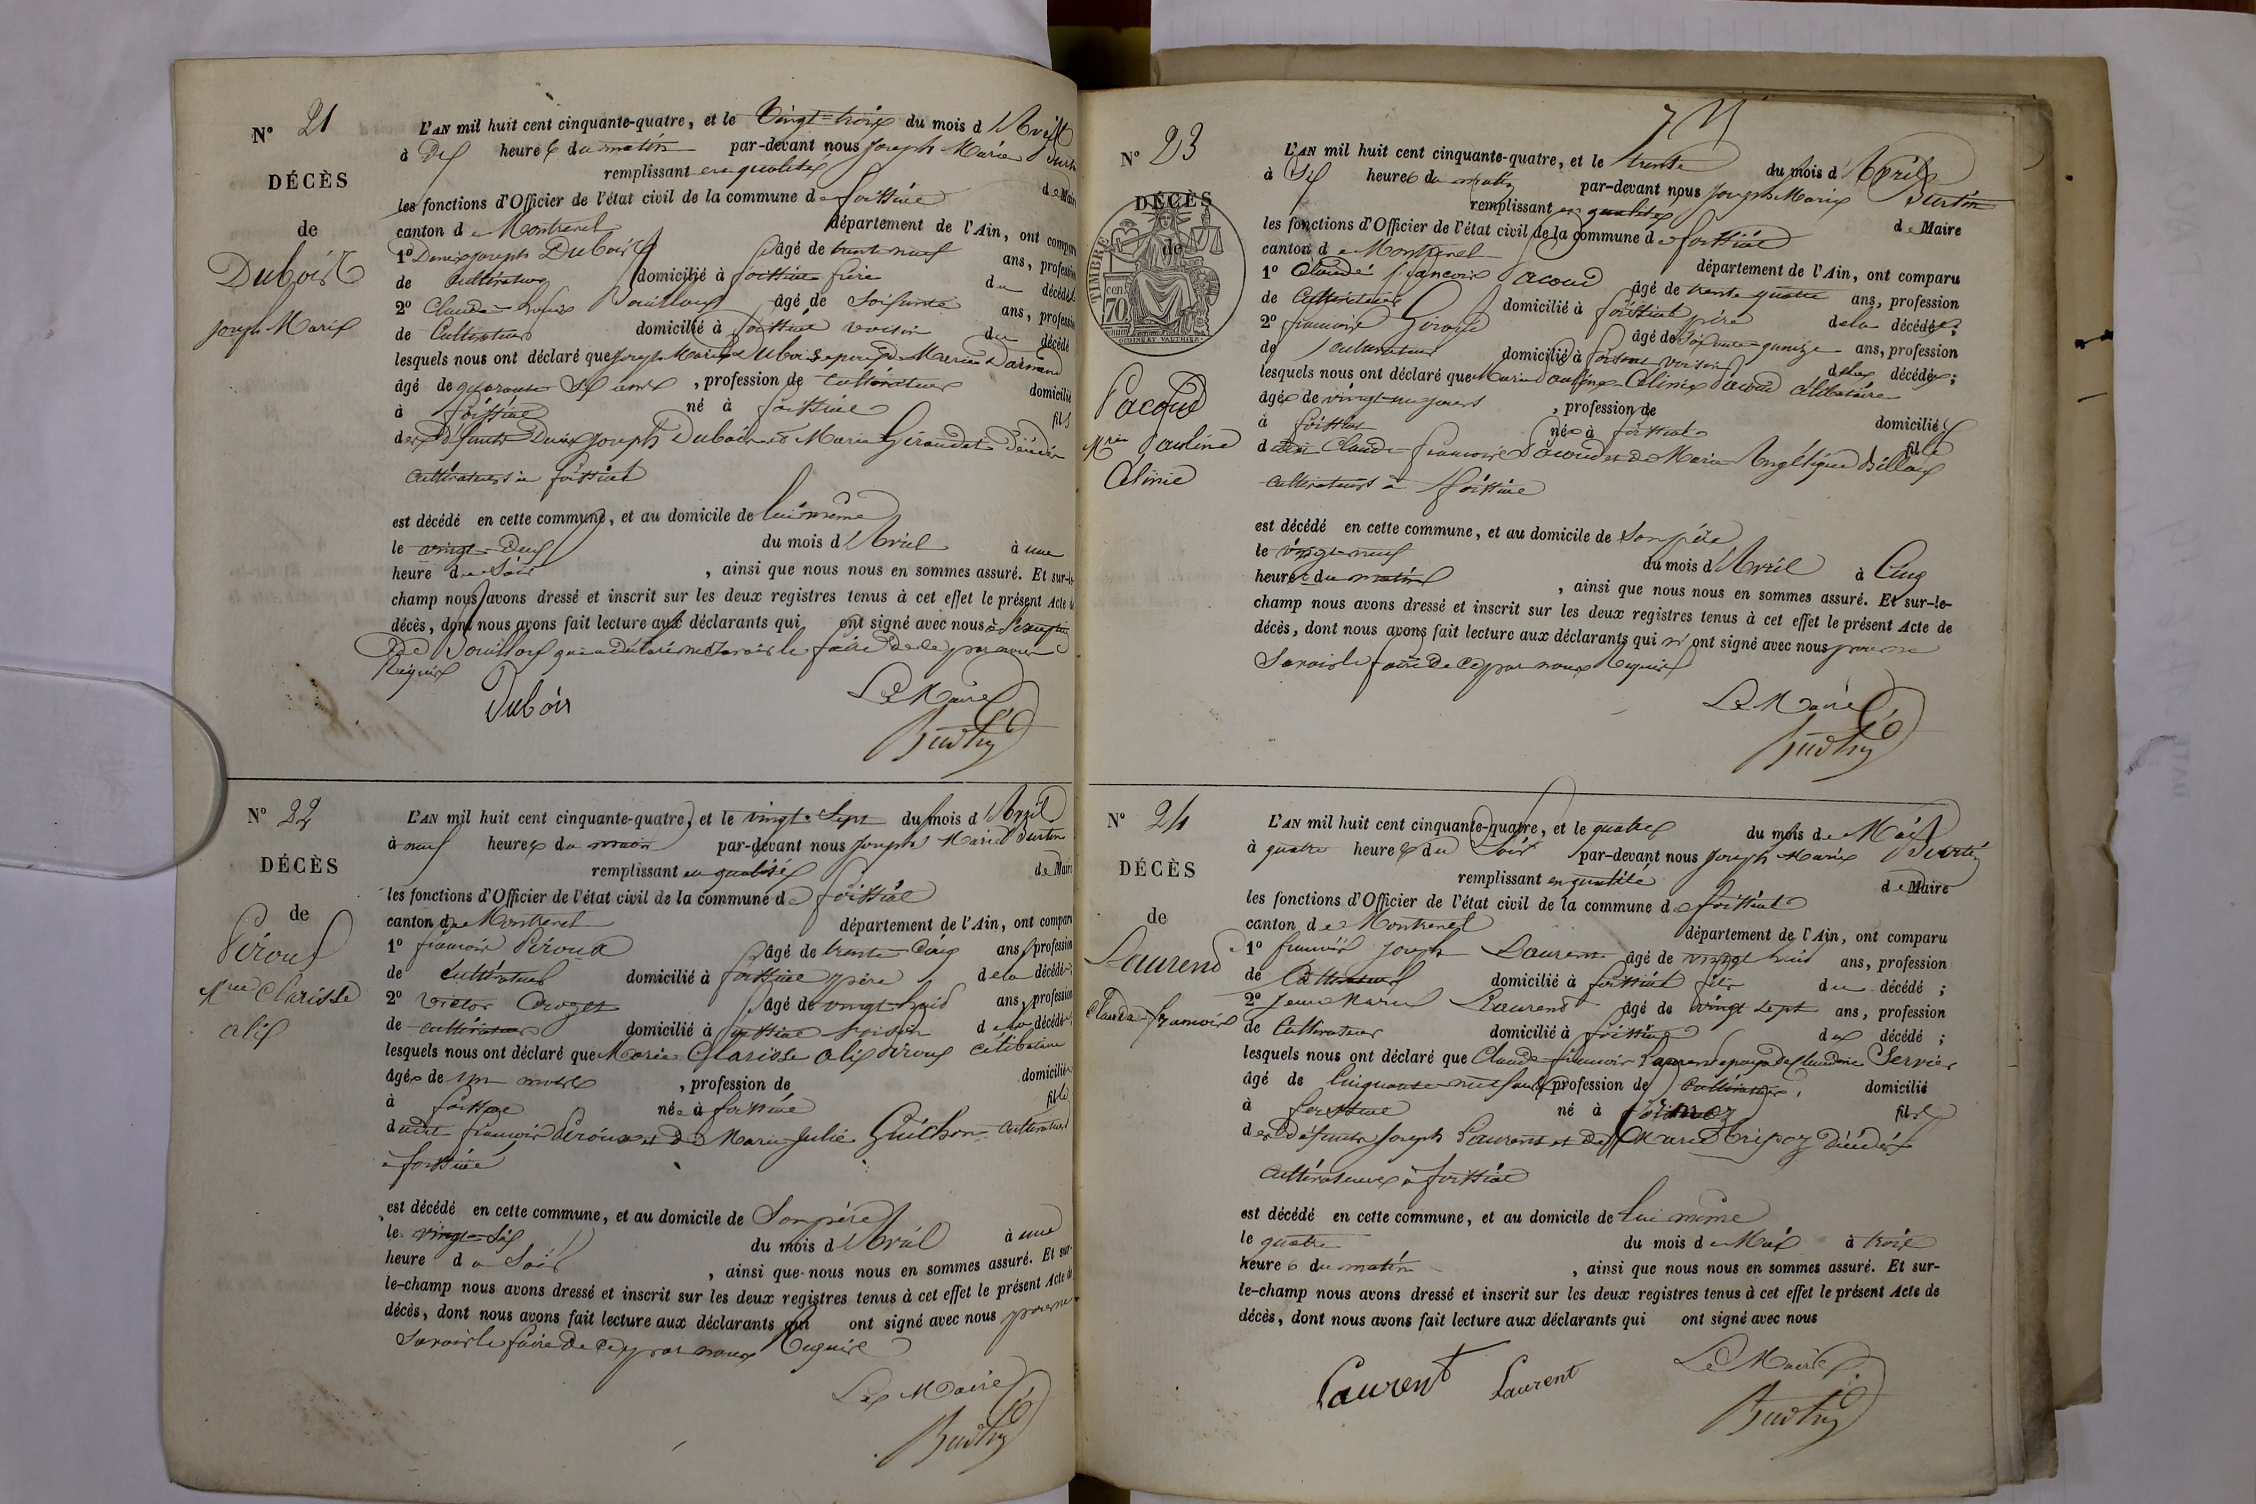 N° 21
DÉCÈS
de
Dubois
Joseph Marie
L'AN mil huit cent cinquante-quatre, et le vingt-trois du mois d'Avril
à Dix heures du matin par-devant nous Joseph Marie Burtin
remplissant en qualité de Maire
les fonctions d'Officier de l'état civil de la commune de foissiat
canton de Montrevel département de l'Ain, ont comparu
1° Denis Joseph Dubois âgé de trente neuf ans, profession
de Cultivateur domicilié à foissiat frère du décédé
2° Claude Bouilloux âgé de Soixante ans, profession
de Cultivateur domicilié à foissiat voisin du décédé
lesquels nous ont déclaré que Joseph Marie Dubois époux de Marie Darnand
âgé de quarante Six ans, profession de Cultivateur domicilié
à foissiat né à foissiat fils
des défunts Denis Joseph Dubois et Marie Giraudet Décédés
Cultivateurs à foissiat
est décédé en cette commune, et au domicile de lui même
le vingt-Deux du mois d'Avril à une
heure du Soir, ainsi que nous nous en sommes assuré. Et sur-le-
champ nous avons dressé et inscrit sur les deux registres tenus à cet effet le présent Acte de
décès, dont nous avons fait lecture aux déclarants qui ont signé avec nous à l'exception
De Bouilloux qui a déclaré ne Savoir le faire de ce par nous
Requis
Dubois
Le Maire
Burtin
N° 22
DÉCÈS
de
Péroux
Mie Clarisse
Alix
L'AN mil huit cent cinquante-quatre, et le vingt-Sept du mois d'Avril
à neuf heures du matin par-devant nous Joseph Marie Burtin
remplissant en qualité de Maire
les fonctions d'Officier de l'état civil de la commune de foissiat
canton de Montrevel département de l'Ain, ont comparu
1° françois Péroux âgé de trente-Cinq ans, profession
de Cultivateur domicilié à foissiat père de la décédée;
2° Victor Crozet âgé de vingt-huit ans, profession
de Cultivateur domicilié à foissiat Voisin de la décédée;
lesquels nous ont déclaré que Marie Clarisse Alix Péroux Célibataire
âgée de un mois, profession de domiciliée
à foissiat née à foissiat fille
dudit françois Péroux et De Marie Julie Guichon Cultivateurs
à foissiat
est décédé en cette commune, et au domicile de Son père
le vingt-Six du mois d'Avril à une
heure du Soir, ainsi que nous nous en sommes assuré. Et sur-
le-champ nous avons dressé et inscrit sur les deux registres tenus à cet effet le présent Acte de
décès, dont nous avons fait lecture aux déclarants qui ont signé avec nous pour ne
Savoir le faire De Ce par nous Requis
Le Maire
Burtin
N° 23
DÉCÈS
de
TIMBRE
70 cen
Pacoud
Mie Pauline
Célinie
L'AN mil huit cent cinquante-quatre, et le trente du mois d'Avril
à Six heures du matin par-devant nous Joseph Marie Burtin
remplissant en qualité de Maire
les fonctions d'Officier de l'état civil de la commune de foissiat
canton de Montrevel département de l'Ain, ont comparu
1° Claude françois Pacoud âgé de trente quatre ans, profession
de Cultivateur domicilié à foissiat père de la décédée;
2° françois Giroud âgé de Soixante quinze ans, profession
de Cultivateur domicilié à foissiat voisin de la décédée;
lesquels nous ont déclaré que Marie Pauline Célinie Pacoud Célibataire
âgée de vingt-un jours, profession de domiciliée
à foissiat née à foissiat fille
dudit Claude françois Pacoud et De Marie Angélique Billoux
Cultivateurs à foissiat
est décédé en cette commune, et au domicile de Son père
le vingt-neuf du mois d'Avril à Cinq
heures du matin, ainsi que nous nous en sommes assuré. Et sur-le-
champ nous avons dressé et inscrit sur les deux registres tenus à cet effet le présent Acte de
décès, dont nous avons fait lecture aux déclarants qui n'ont signé avec nous pour ne
Savoir le faire De Ce par nous Requis
Le Maire
Burtin
N° 24
DÉCÈS
de
Laurend
Claude françois
L'AN mil huit cent cinquante-quatre, et le quatre du mois de Mai
à quatre heures du Soir par-devant nous Joseph Marie Burtin
remplissant en qualité de Maire
les fonctions d'Officier de l'état civil de la commune de foissiat
canton de Montrevel département de l'Ain, ont comparu
1° françois Joseph Laurent âgé de vingt huit ans, profession
de Cultivateur domicilié à foissiat fils du décédé;
2° Jean Marie Laurend âgé de vingt Sept ans, profession
de Cultivateur domicilié à foissiat du décédé;
lesquels nous ont déclaré que Claude françois Laurend époux de Claudine Servier
âgé de Cinquante neuf ans, profession de Cultivateur, domicilié
à foissiat né à fils
des défunts Joseph Laurent et De Marie Tripoz Décédés
Cultivateurs à foissiat
est décédé en cette commune, et au domicile de lui même
le quatre du mois de Mai à trois
heures du matin, ainsi que nous nous en sommes assuré. Et sur-
le-champ nous avons dressé et inscrit sur les deux registres tenus à cet effet le présent Acte de
décès, dont nous avons fait lecture aux déclarants qui ont signé avec nous
Laurent Laurent
Le Maire
Burtin